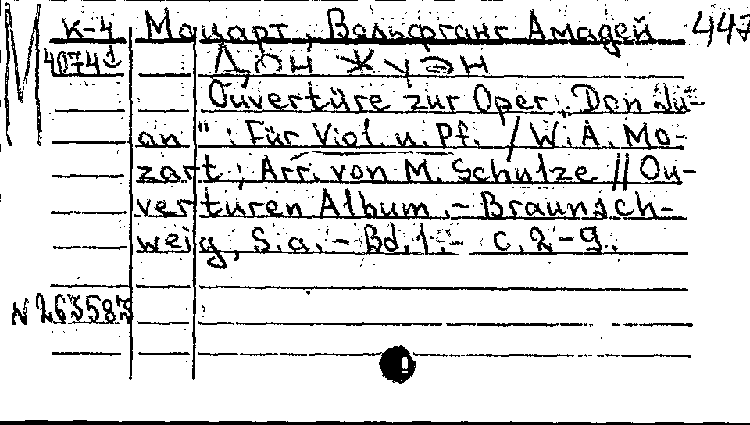 М К-4 Моцарт, Вольфганг Амадей 447
Дон Жуэн
Ouvertüre zur Oper „Don Ju-
an“: Für Viol. u. Pf. / W. A. Mo-
zart; Arr. von M. Schulze // Ou-
verturen Album. - Braunsch-
weig, S. a. - Bd. 1. - С. 2-9.
N 263583